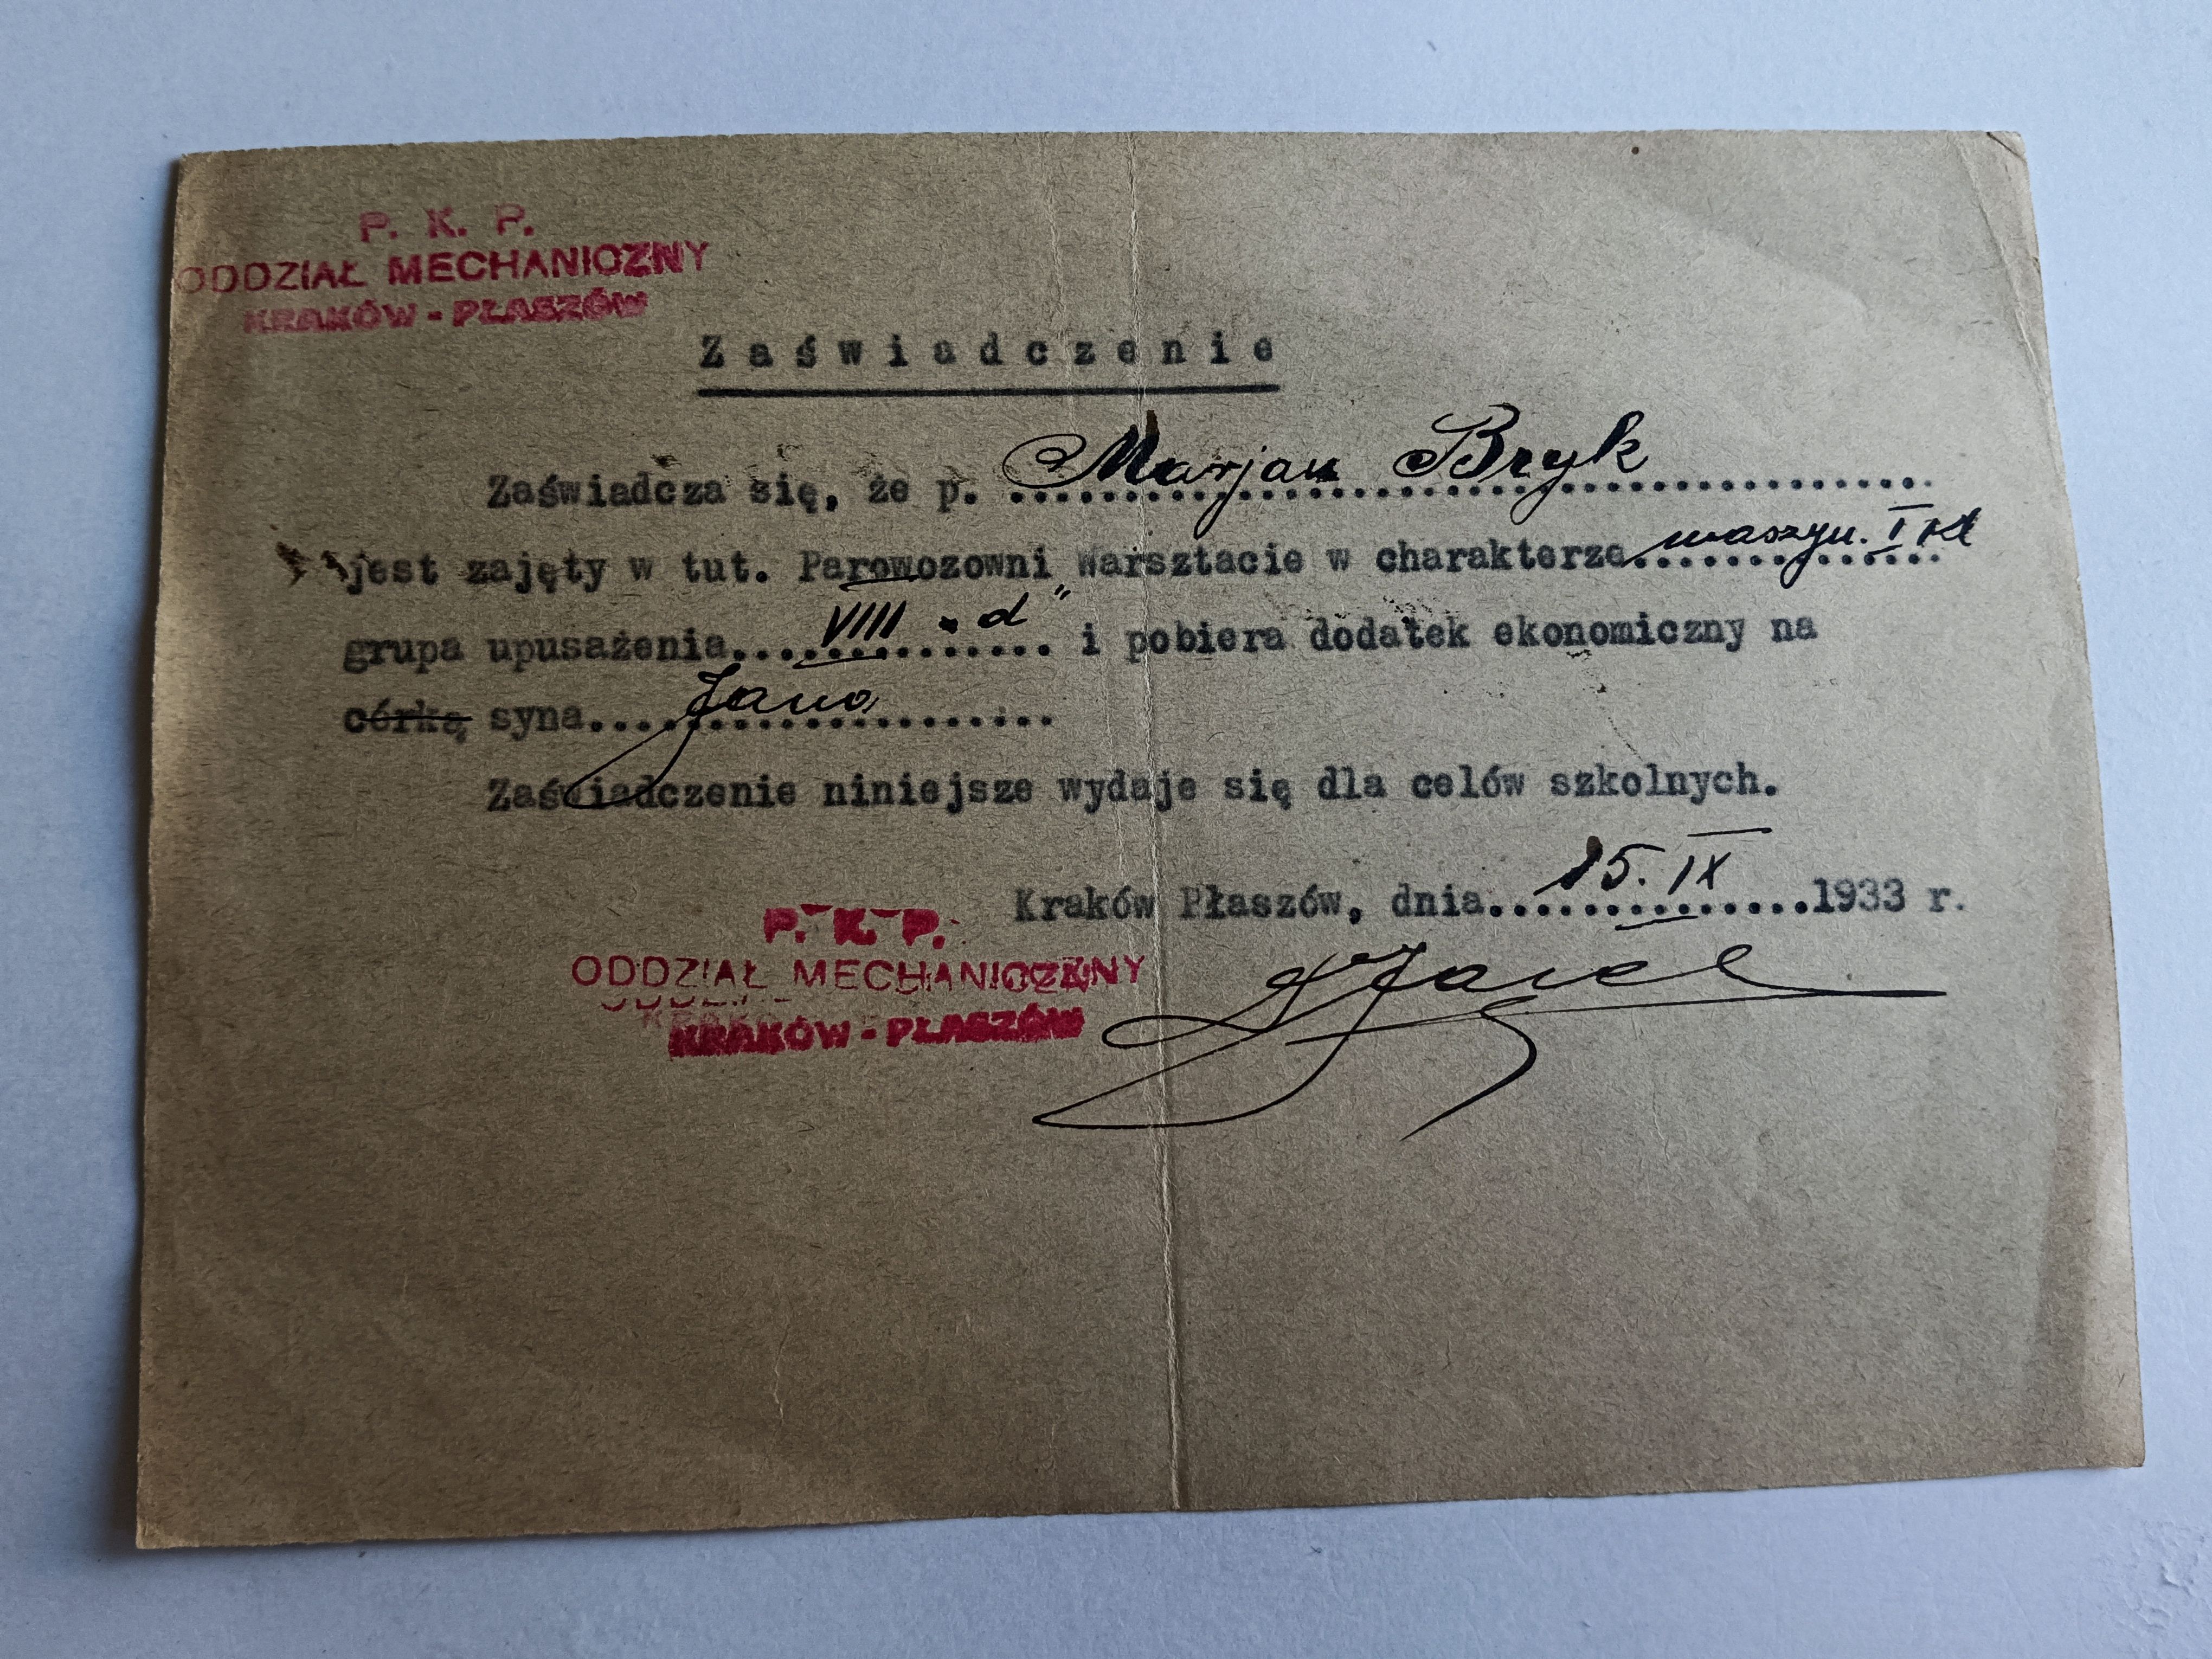 P. K. P.
ODDZIAŁ MECHANICZNY
KRAKÓW - PŁASZÓW
Zaświadczenie
Zaświadcza się, że p. Marjan Bryk
jest zajęty w tut. Parowozowni warsztacie w charakterze maszyn. I kl
grupa upusażenia VIII "d" i pobiera dodatek ekonomiczny na
córkę syna Jana
Zaświadczenie niniejsze wydaje się dla celów szkolnych.
Kraków Płaszów, dnia 15. IX 1933 r.
P. K. P.
ODDZIAŁ MECHANICZNY
KRAKÓW - PŁASZÓW